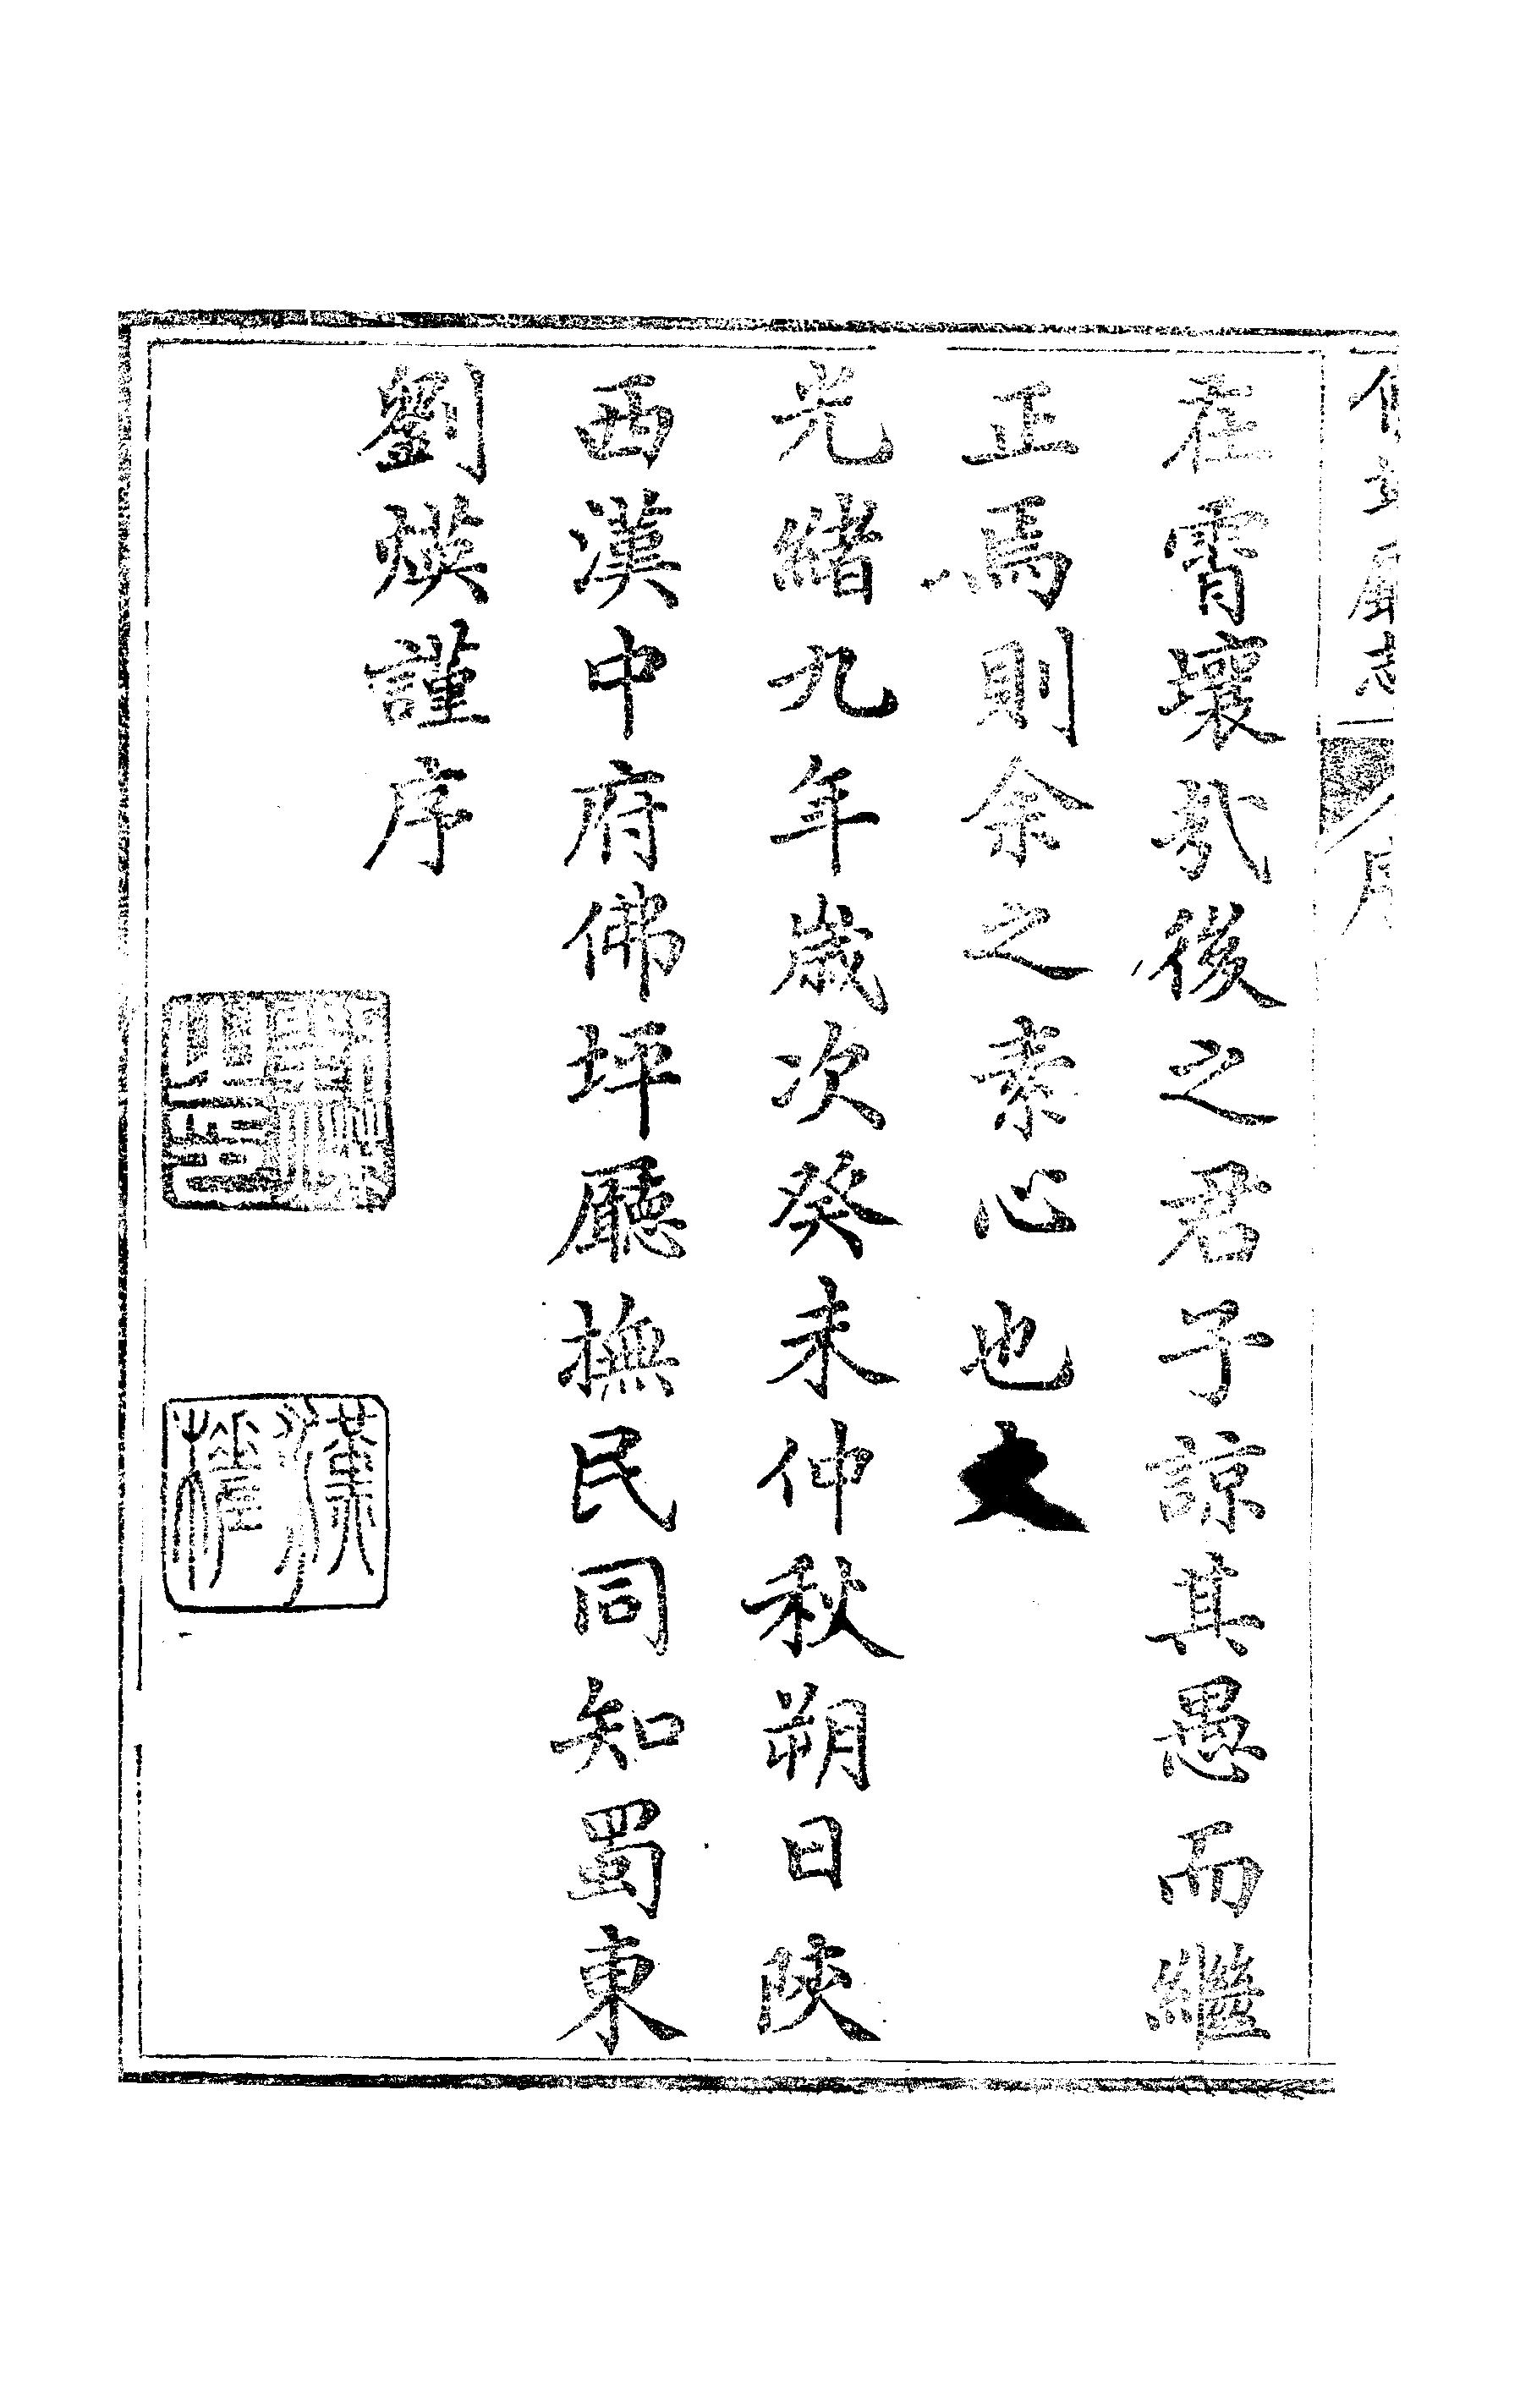 佛坪廳志
序
在霄壤哉後之君子諒其愚而繼
正焉則余之素心也夫
光緒九年歲次癸未仲秋朔日陝
西漢中府佛坪廳撫民同知蜀東
劉煐謹序
劉煐之印
漢權